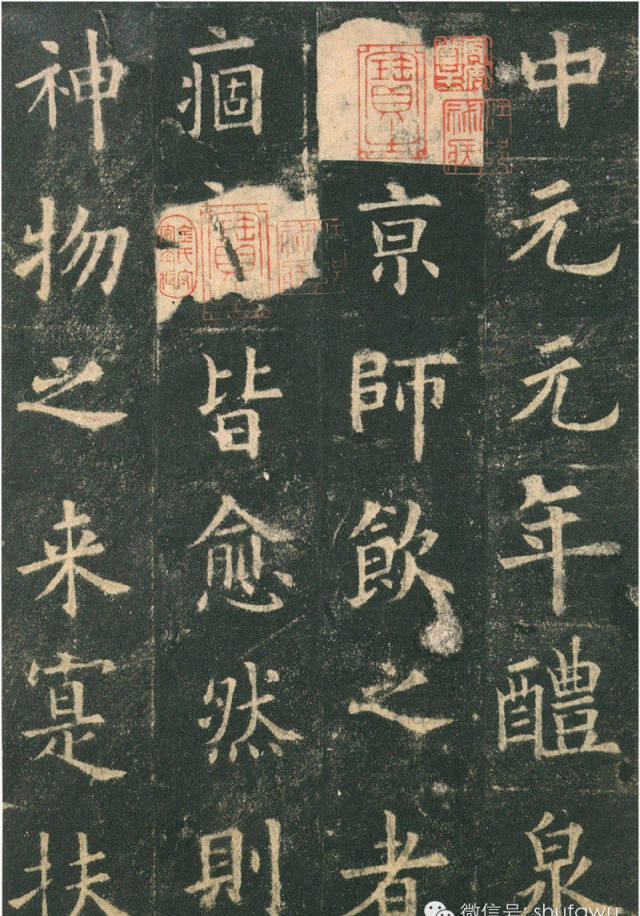 中元元年醴泉
亰師飲之者
痼皆愈然則
神物之来寔扶
微信号: shufawu